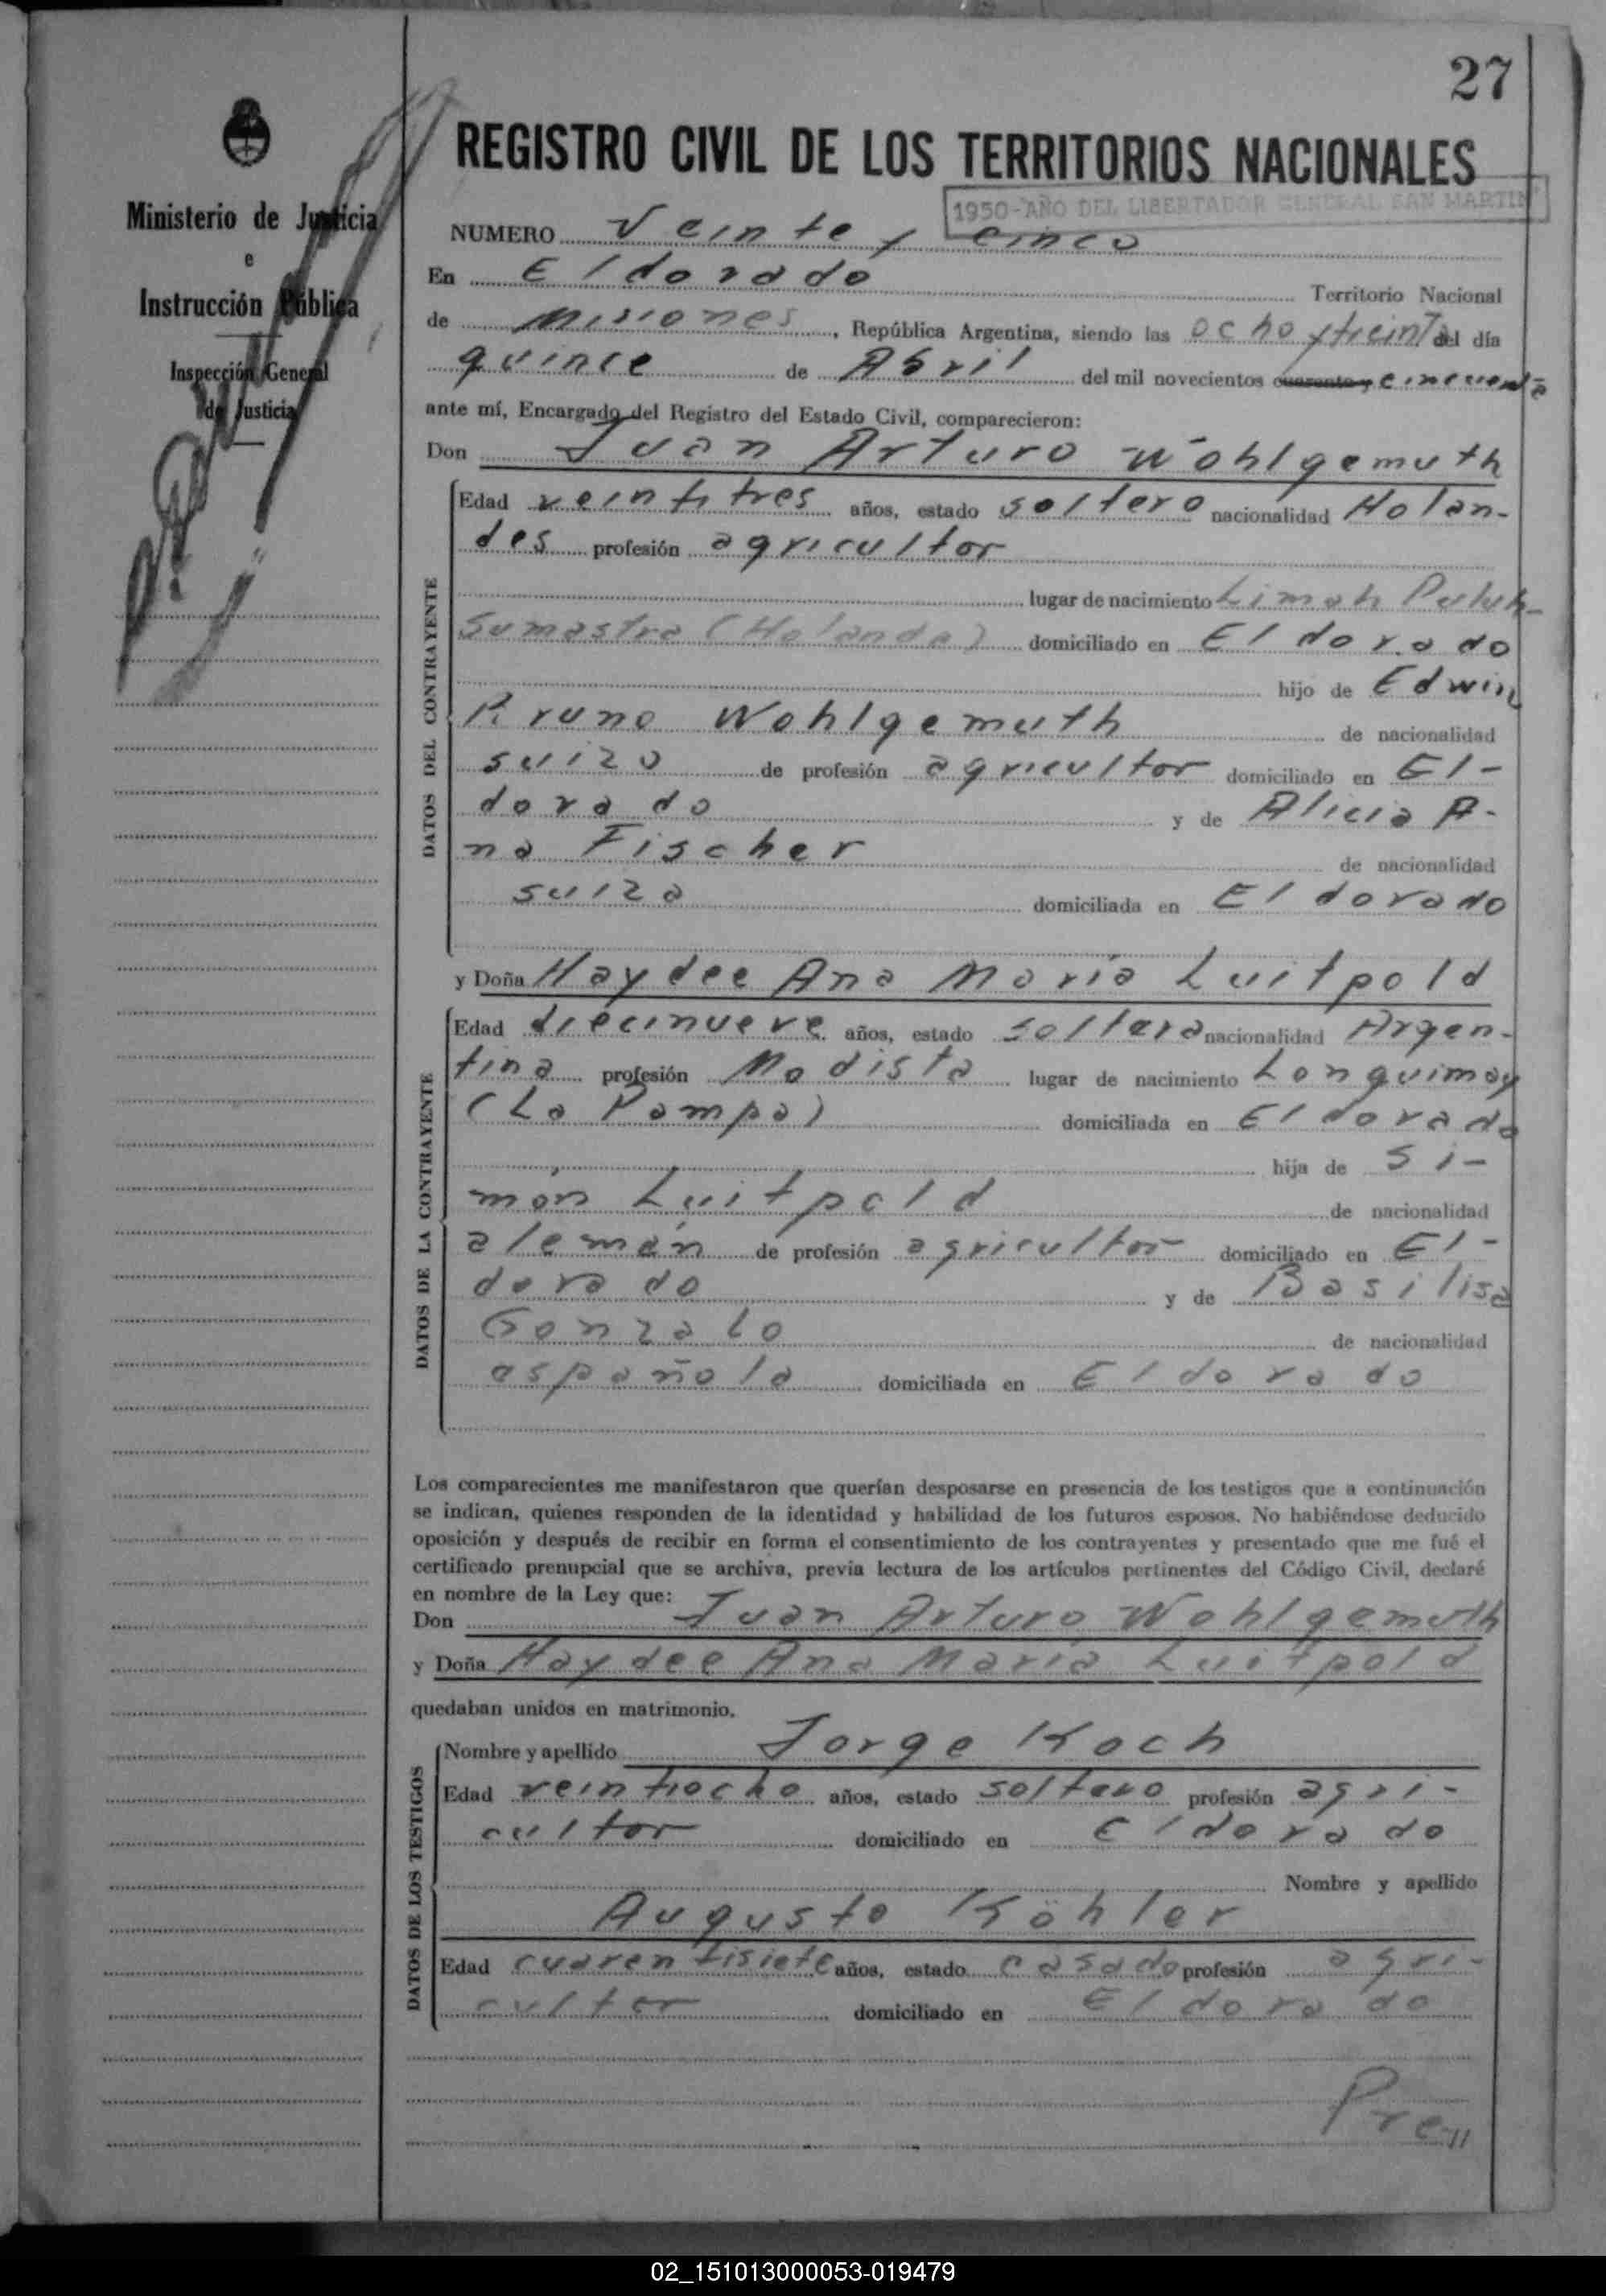 27
Ministerio de Justicia
e
Instrucción Pública
Inspección General
de Justicia
REGISTRO CIVIL DE LOS TERRITORIOS NACIONALES
1950-AÑO DEL LIBERTADOR GENERAL SAN MARTIN
NUMERO Veinte y cinco
En Eldorado Territorio Nacional
de Misiones, República Argentina, siendo las ocho y treinta del día
quince de Abril del mil novecientos cuarenta y cincuenta
ante mí, Encargado del Registro del Estado Civil, comparecieron:
Don Juan Arturo Wohlgemuth
DATOS DEL CONTRAYENTE
Edad veintitres años, estado soltero nacionalidad Holan-
des profesión agricultor
lugar de nacimiento Limah Puluh-
Sumastra (Holanda) domiciliado en Eldorado
hijo de Edwin
Bruno Wohlgemuth de nacionalidad
suizo de profesión agricultor domiciliado en El-
dorado y de Alicia A-
na Fischer de nacionalidad
suiza domiciliada en Eldorado
y Doña Haydee Ana Maria Luitpold
DATOS DE LA CONTRAYENTE
Edad diecinueve años, estado soltera nacionalidad Argen-
tina profesión Modista lugar de nacimiento Lonquimay
(La Pampa) domiciliada en Eldorado
hija de Si-
món Luitpold de nacionalidad
alemán de profesión agricultor domiciliado en El-
dorado y de Basilisa
Gonzalo de nacionalidad
española domiciliada en Eldorado
Los comparecientes me manifestaron que querían desposarse en presencia de los testigos que a continuación
se indican, quienes responden de la identidad y habilidad de los futuros esposos. No habiéndose deducido
oposición y después de recibir en forma el consentimiento de los contrayentes y presentado que me fué el
certificado prenupcial que se archiva, previa lectura de los artículos pertinentes del Código Civil, declaré
en nombre de la Ley que:
Don Juan Arturo Wohlgemuth
y Doña Haydee Ana Maria Luitpold
quedaban unidos en matrimonio.
DATOS DE LOS TESTIGOS
Nombre y apellido Jorge Koch
Edad veintiocho años, estado soltero profesión agri-
cultor domiciliado en Eldorado
Nombre y apellido
Augusto Köhler
Edad cuarentisiete años, estado casado profesión agri-
cultor domiciliado en Eldorado
Pre-//
02_151013000053-019479